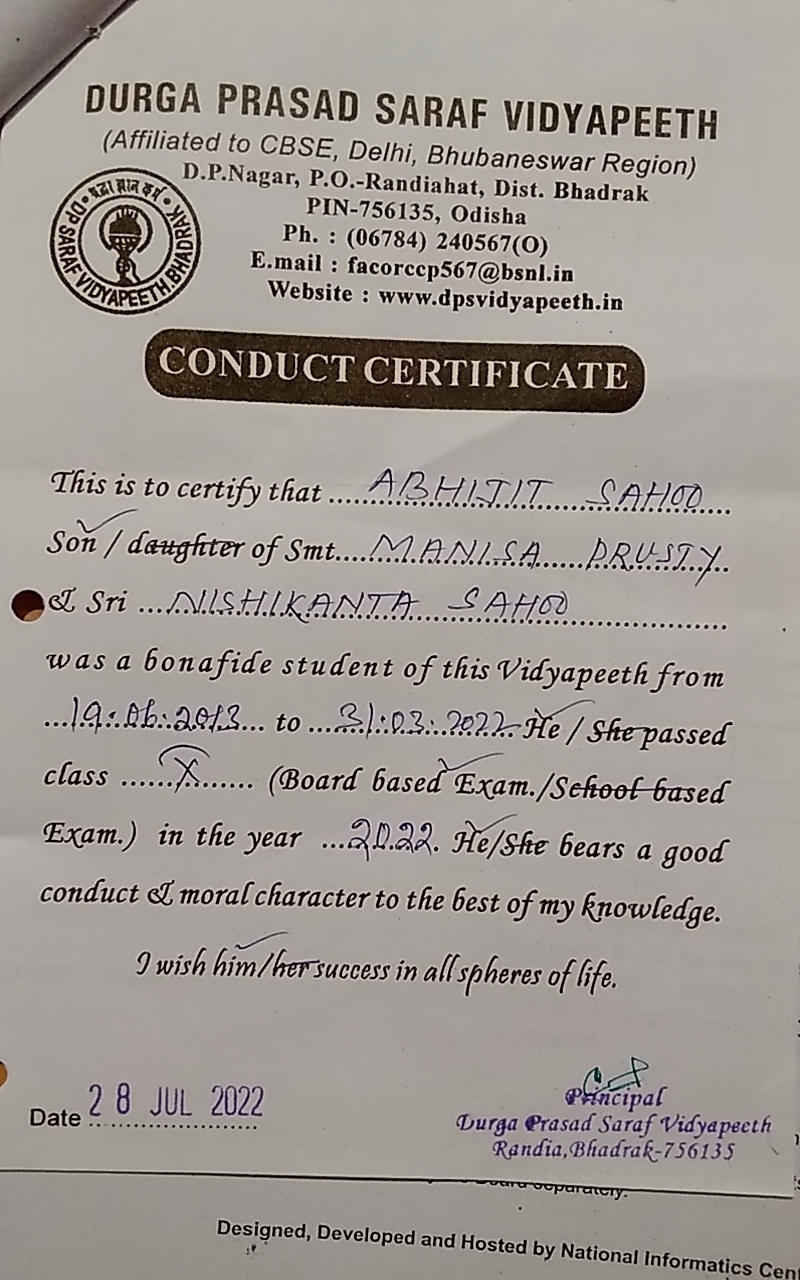 DURGA PRASAD SARAF VIDYAPEETH
(Affiliated to CBSE, Delhi, Bhubaneswar Region)
D.P.Nagar, P.O.-Randiahat, Dist. Bhadrak
PIN-756135, Odisha
Ph. : (06784) 240567(O)
E.mail : facorccp567@bsnl.in
Website : www.dpsvidyapeeth.in
श्रद्धा ज्ञान कर्म
DP SARAF VIDYAPEETH. BHADRAK
CONDUCT CERTIFICATE
This is to certify that ABHIJIT SAHOO
Son / daughter of Smt. MANISA DRUSTY
& Sri NISHIKANTA SAHOO
was a bonafide student of this Vidyapeeth from
19.06.2013 to 31.03.2022 He / She passed
class X (Board based Exam./School based
Exam.) in the year 2022. He/She bears a good
conduct & moral character to the best of my knowledge.
I wish him/her success in all spheres of life.
Date 28 JUL 2022
Principal
Durga Prasad Saraf Vidyapeeth
Randia, Bhadrak-756135
Board separately.
Designed, Developed and Hosted by National Informatics Cent